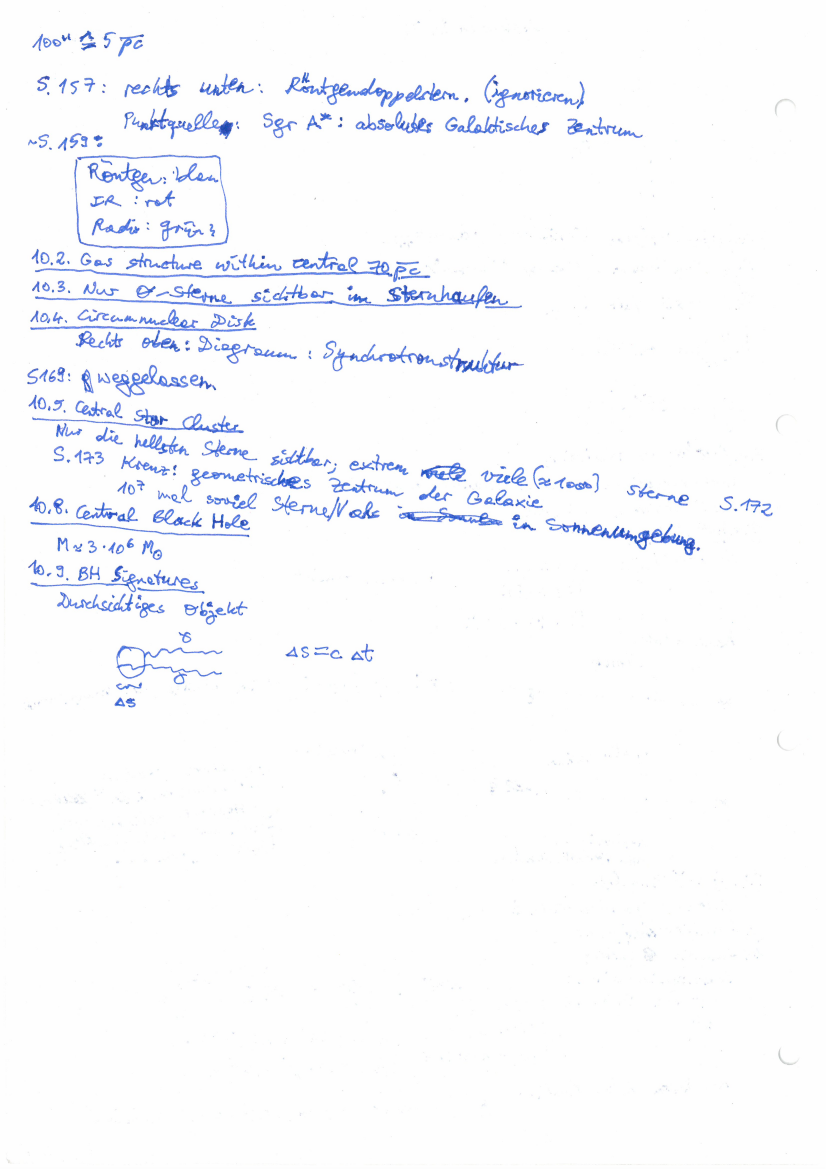 100" ≙ 5 pc
S. 157: rechts unten: Röntgendoppelstern. (ignorieren)
Punktquelle: Sgr A*: absolutes Galaktisches Zentrum
~S. 159:
Röntgen: blau
IR : rot
Radio: grün
10.2. Gas structure within central 70 pc
10.3. Nur O-Sterne sichtbar im Sternhaufen
10.4. Circumnuclear Disk
Rechts oben: Diagramm: Synchrotronstruktur
S169: weggelassen.
10.5. Central Star Cluster
Nur die hellsten Sterne sichtbar; extrem viele (≈1000) Sterne S.172
S.173 Kreuz: geometrisches Zentrum der Galaxie
10⁷ mal soviel Sterne/ in Sonnenumgebung.
10.8. Central Black Hole
M ≈ 3·10⁶ M⊙
10.9. BH Signatures
Durchsichtiges Objekt
Δs = c Δt
Δs